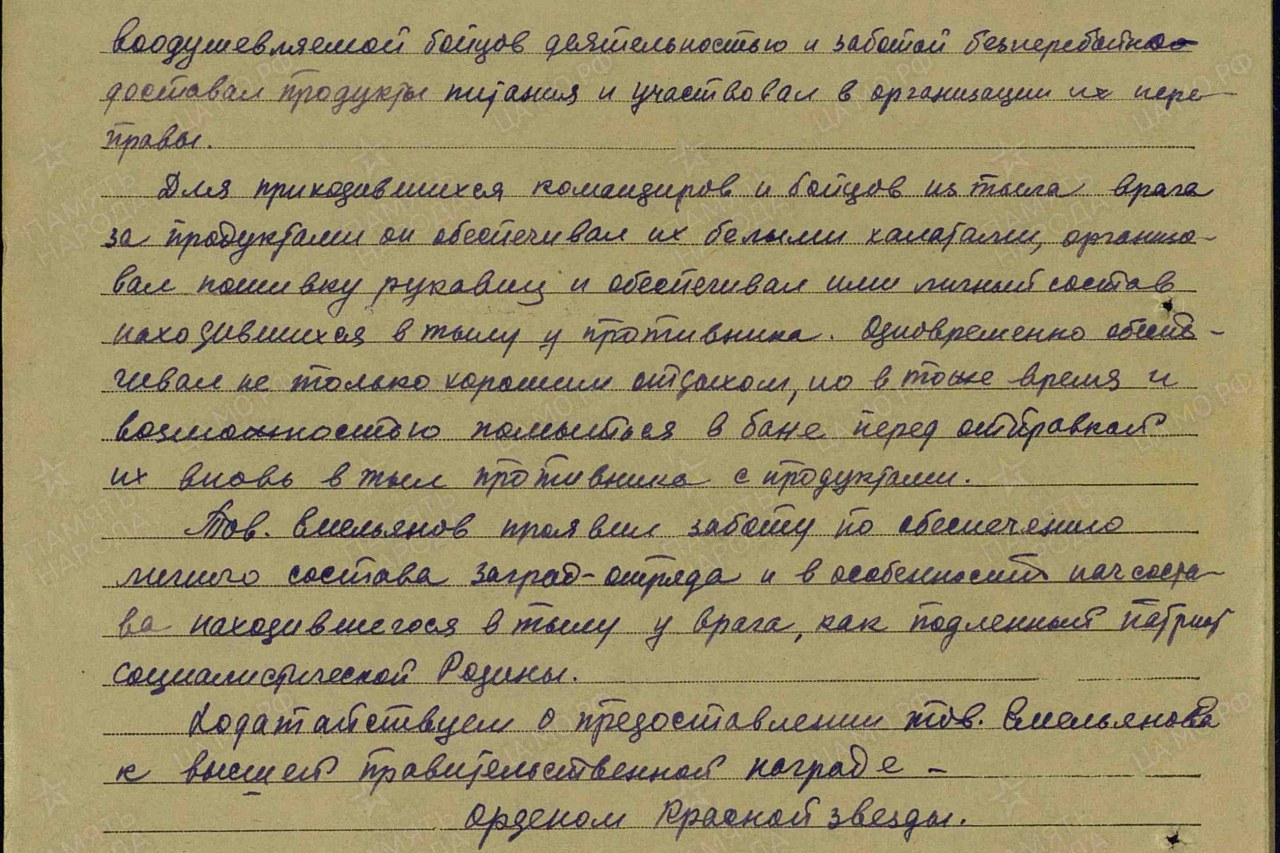 воодушевляемой бойцов деятельностью и заботой безперебойно
доставал продукты питания и участвовал в организации их пере-
правы.
Для приходившихся командиров и бойцов из тыла врага
за продуктами он обеспечивал их белыми халатами, организо-
вал пошивку рукавиц и обеспечивал ими личный состав
находившихся в тылу у противника. Одновременно обеспе-
чивал не только хорошим отдыхом, но в тоже время и
возможностью помыться в бане перед отправкой
их вновь в тыл противника с продуктами.
Тов. Емельянов проявил заботу по обеспечению
личного состава заград-отряда и в особенности начсоста-
ва находившегося в тылу у врага, как подленный патриот
социалистической Родины.
Ходатайствуем о предоставлении тов. Емельянова
к высшей правительственной награде –
орденом Красной звезды.
ПАМЯТЬ НАРОДА
ЦАМО.РФ